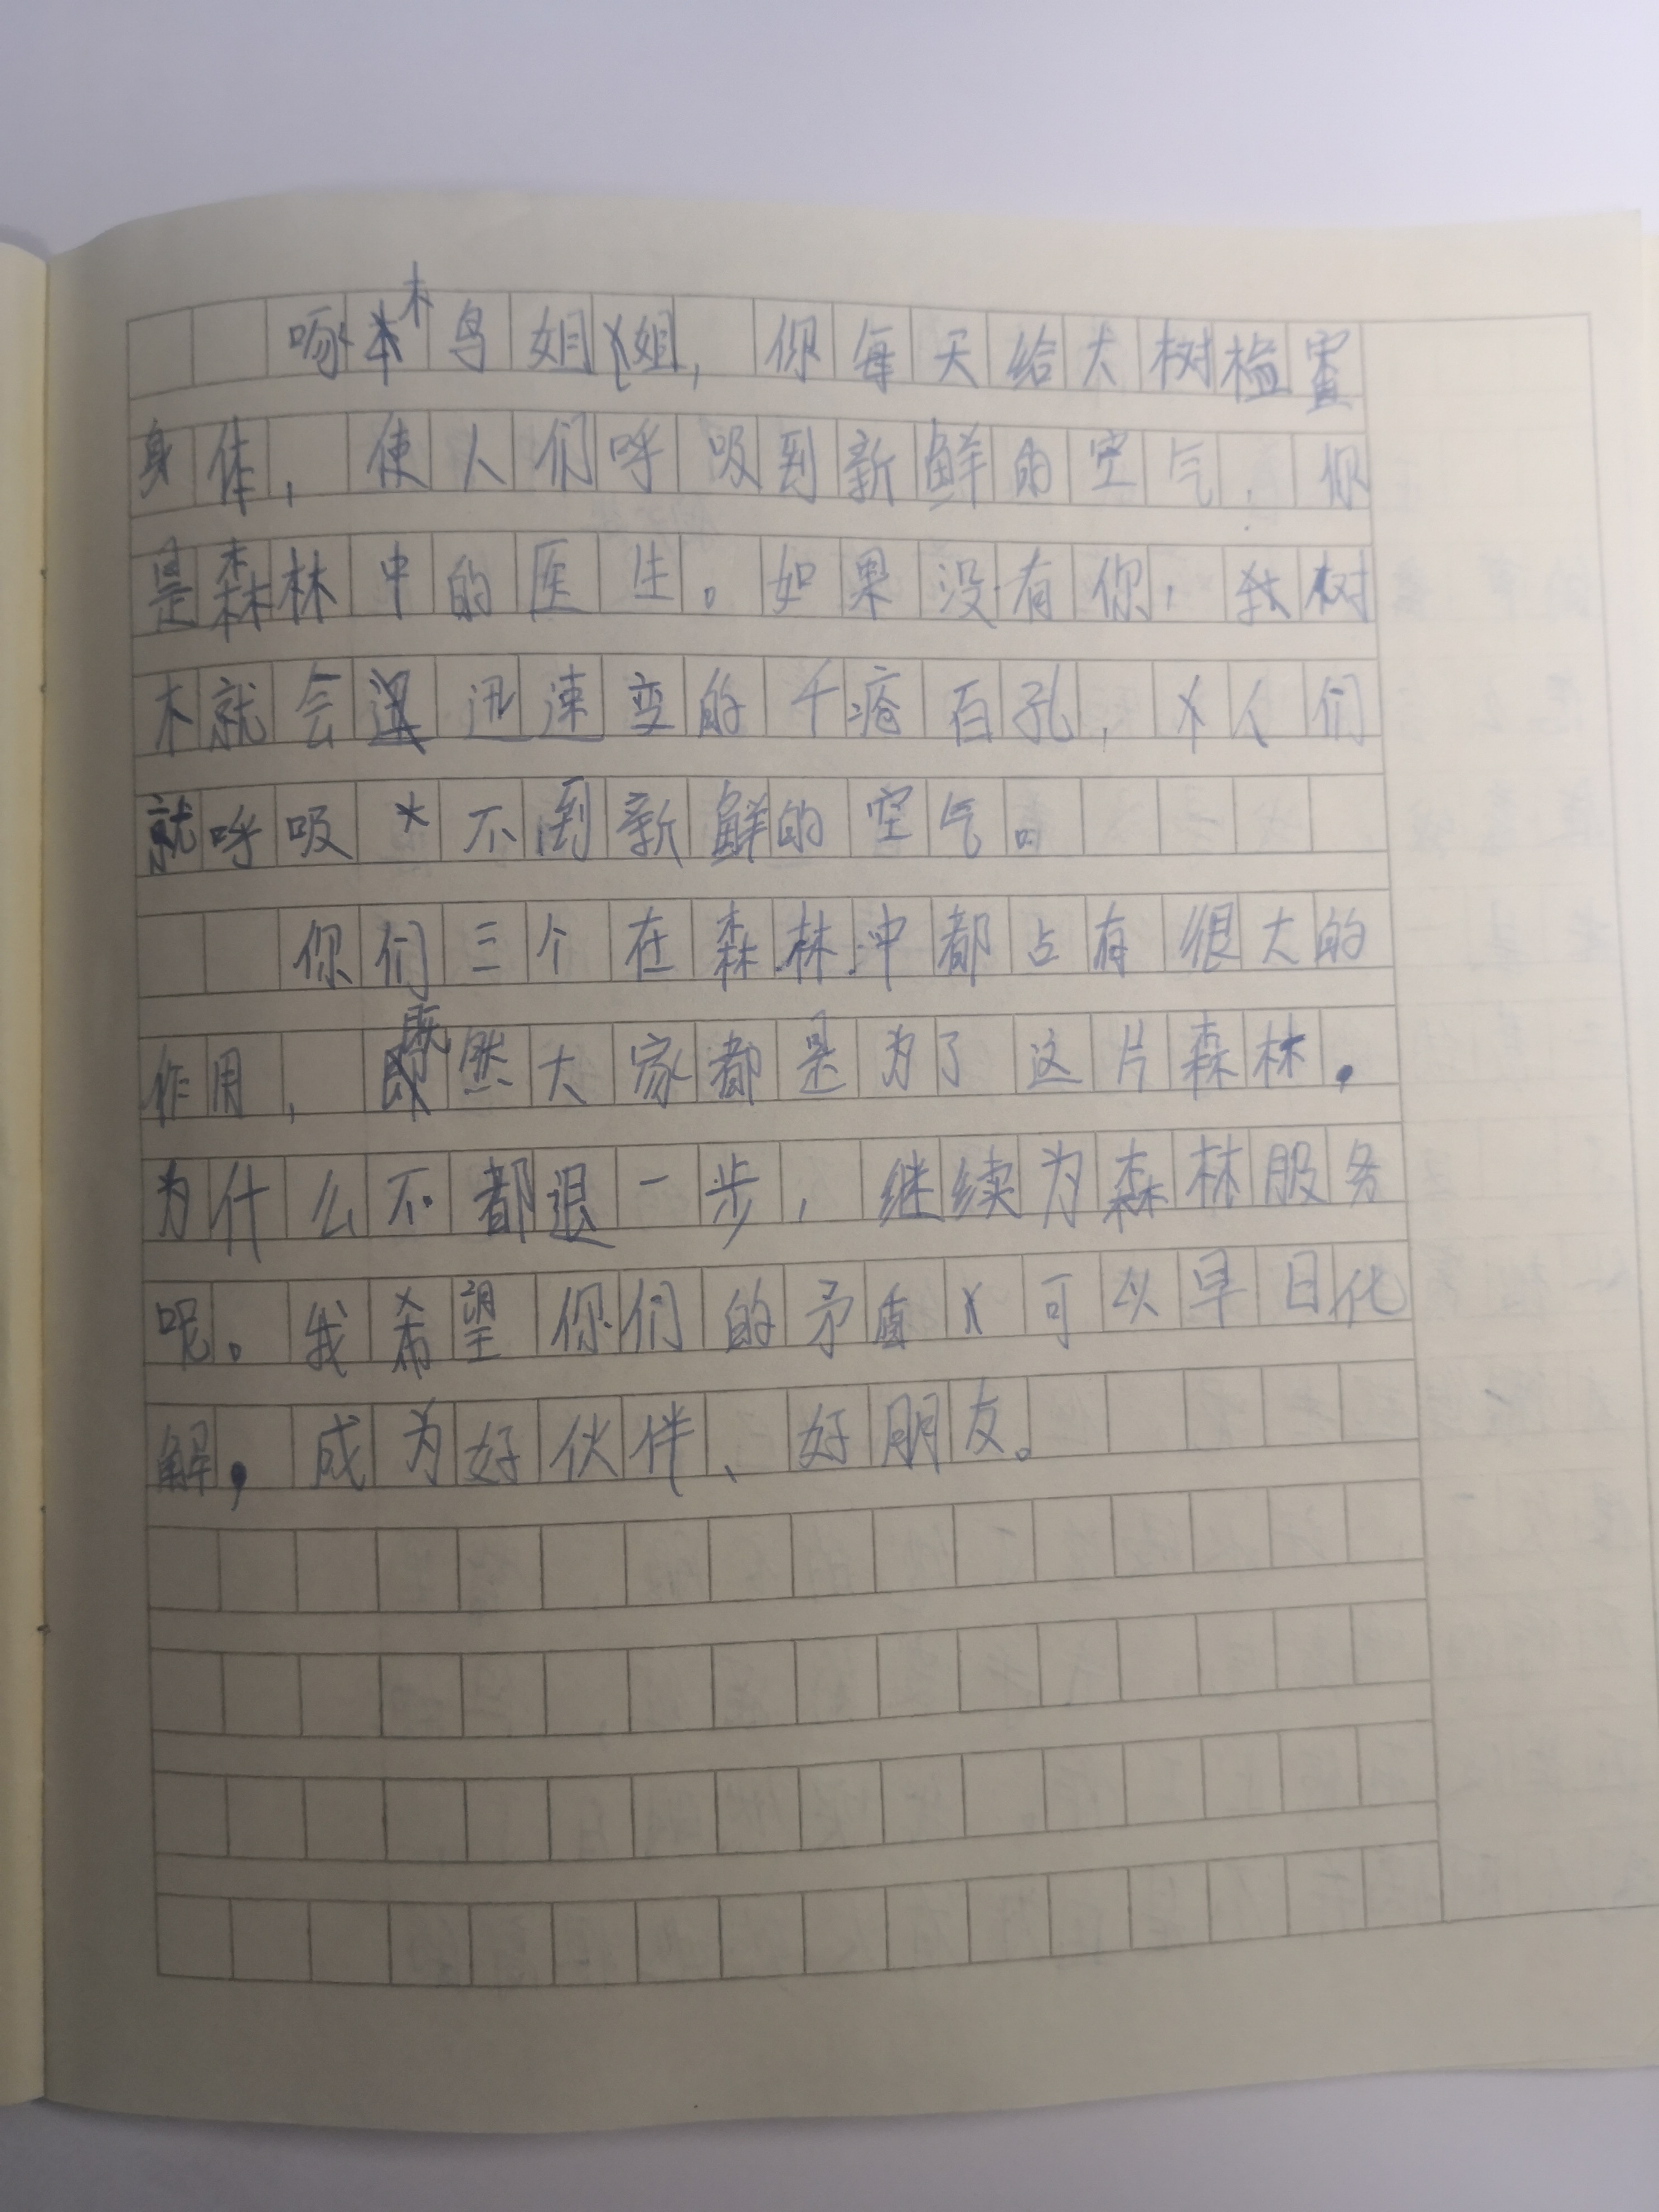 啄木鸟姐姐，你每天给大树检查
身体，使人们呼吸到新鲜的空气，你
是森林中的医生。如果没有你，树
木就会迅速变的千疮百孔，人们
就呼吸不到新鲜的空气。
你们三个在森林中都占有很大的
作用，既然大家都是为了这片森林.
为什么不都退一步，继续为森林服务
呢。我希望你们的矛盾可以早日化
解，成为好伙伴、好朋友。